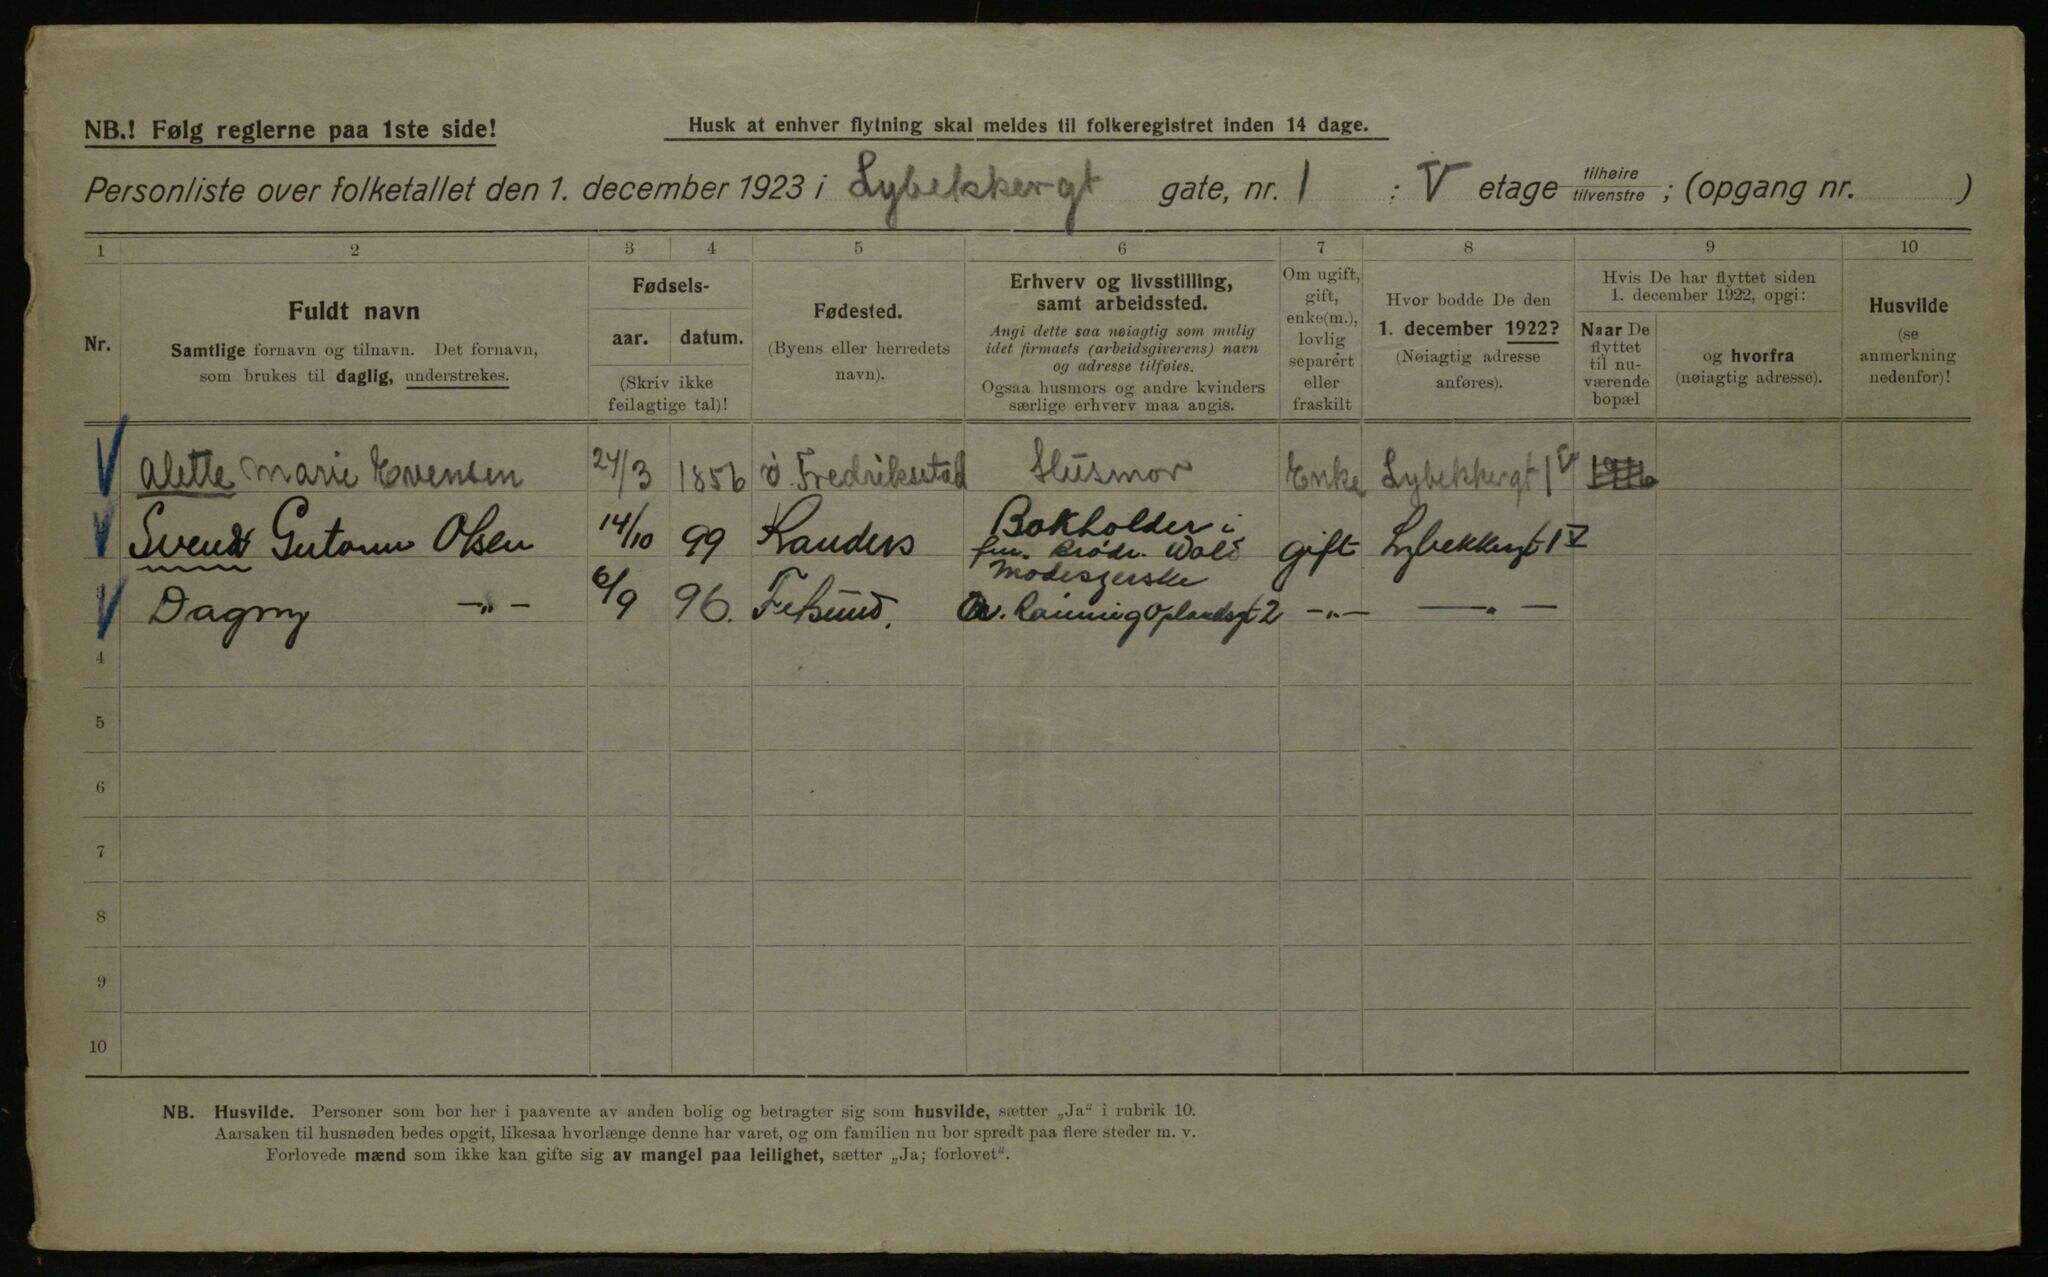 NB.! Følg reglerne paa 1ste side!
Husk at enhver flytning skal meldes til folkeregistret inden 14 dage.
Personliste over folketallet den 1. december 1923 i Lybekkergt gate, nr. 1 : V etage tilhøire tilvenstre ; (opgang nr. )
1 2 3 4 5 6 7 8 9 10
Nr.
Fuldt navn
Samtlige fornavn og tilnavn. Det fornavn,
som brukes til daglig, understrekes.
Fødsels-
aar. datum.
(Skriv ikke
feilagtige tal)!
Fødested.
(Byens eller herredets
navn).
Erhverv og livsstilling,
samt arbeidssted.
Angi dette saa nøiagtig som mulig
idet firmaets (arbeidsgiverens) navn
og adresse tilføies.
Ogsaa husmors og andre kvinders
særlige erhverv maa angis.
Om ugift,
gift,
enke(m.),
lovlig
separert
eller
fraskilt
Hvor bodde De den
1. december 1922?
(Nøiagtig adresse
anføres).
Hvis De har flyttet siden
1. december 1922, opgi:
Naar De
flyttet
til nu-
værende
bopæl
og hvorfra
(nøiagtig adresse).
Husvilde
(se
anmerkning
nedenfor)!
Alette Marie Evensen 24/3 1856 Fredriksstad Husmor Enke Lybekkergt 1 V
Svend Olsen 14/10 99 Randers Bokholder i gift Lybekkergt 1 V
fm. Brødr.
Modesyerske
Dagny -"- 6/9 96. Oplandsgt 2 -"- -"-
4
5
6
7
8
9
10
NB. Husvilde. Personer som bor her i paavente av anden bolig og betragter sig som husvilde, sætter „Ja“ i rubrik 10.
Aarsaken til husnøden bedes opgit, likesaa hvorlænge denne har varet, og om familien nu bor spredt paa flere steder m. v.
Forlovede mænd som ikke kan gifte sig av mangel paa leilighet, sætter „Ja; forlovet“.